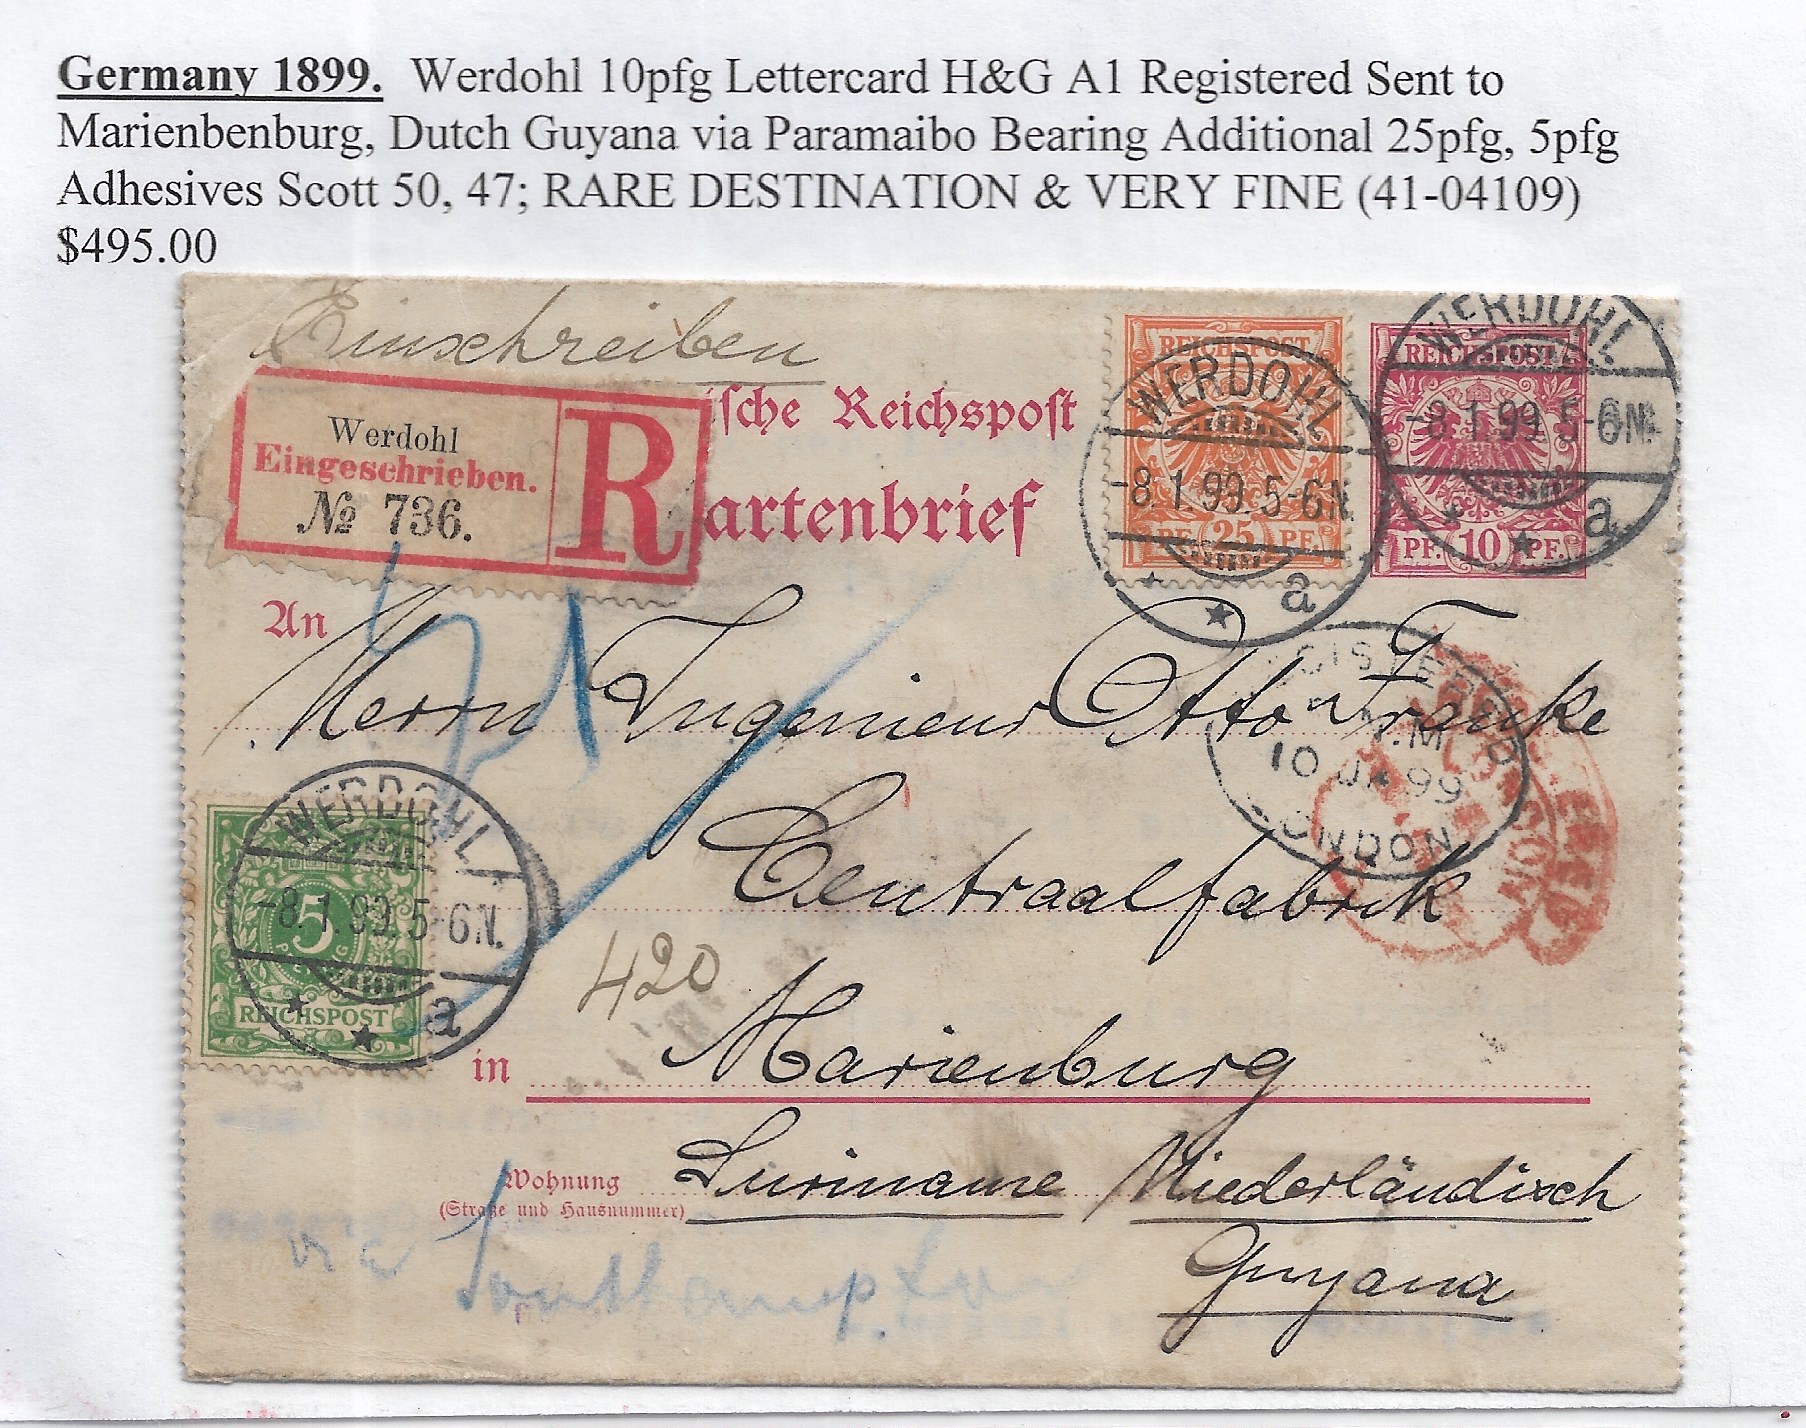 Germany 1899. Werdohl 10pfg Lettercard H&G A1 Registered Sent to
Marienbenburg, Dutch Guyana via Paramaibo Bearing Additional 25pfg, 5pfg
Adhesives Scott 50, 47; RARE DESTINATION & VERY FINE (41-04109)
$495.00
Einschreiben
Werdohl
Eingeschrieben.
№ 736.
R
ische Reichspost
artenbrief
REICHSPOST
PF. 25 PF.
WERDOHL
-8.1.99.5-6N.
a
REICHSPOST
PF. 10 PF.
WERDOHL
-8.1.99.5-6N.
a
An
Herrn Ingenieur Otto Franke
GISTERED
10 JA 99
ONDON
Centraalfabrik
5
REICHSPOST
WERDOHL
-8.1.99.5-6N.
a
420
in
Marienburg
Wohnung
(Straße und Hausnummer)
Suriname / Niederländisch
Guyana
via Southampton